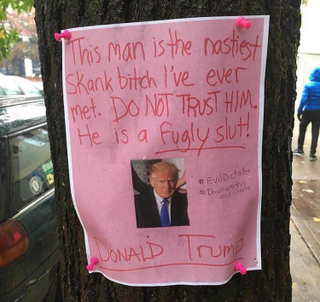 This man is the nastiest
skank bitch I've ever
met. DO NOT TRUST HIM.
He is a fugly slut!
#EvilDictator
DONALD Trump